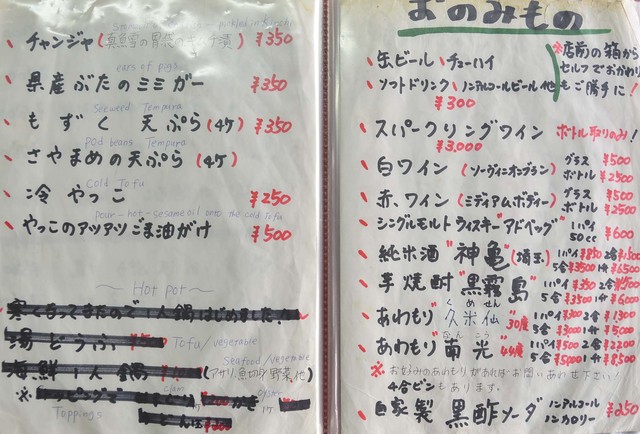 チャンジャ(真鱈の胃袋のキムチ漬) ¥350
ears of pigs
県産ぶたのミミガー ¥350
Seeweed Tempura
もずく天ぷら(4ケ) ¥350
Pod beans Tempura
さやまめの天ぷら(4ケ)
Cold Tofu
冷やっこ ¥250
Pour-hot-sesame oil onto the cold Tofu
やっこのアツアツごま油がけ ¥500
〜Hot pot〜
寒くなってまたので一人鍋はじめました!
湯どうふ
Tofu/vegetable
Seafood/vegetable
海鮮1人鍋
(アサリ、魚切身、野菜、他)
※トッピング
clam
oyster
かき
1ケ
Toppings
うどん
おのみもの
缶ビール、チューハイ
ソフトドリンク、ノンアルコールビール他
¥300
※店前の箱から
セルフでおかわり
もご勝手に!
スパークリングワイン ボトル取りのみ!
¥3,000
白ワイン(ソーヴィニオンブラン) グラス ¥500
ボトル ¥2500
赤ワイン(ミディアムボディー) グラス ¥500
ボトル ¥2500
シングルモルトウィスキー"アドベッグ" 1パイ
50cc ¥600
純米酒"神亀"(埼玉) 1パイ¥850 2合
5合¥3500 1升¥6500
芋焼酎"黒霧島" 1パイ¥350 2合
5合¥3500 1升¥6000
くめせん
あわもり"久米仙"30度 1パイ¥300 2合¥1300
5合¥3000 1升¥5000
なんこう
あわもり"南光"44度 1パイ¥500 2合¥2200
5合¥5000 1升¥8500
※お好みのあわもりがあればお問いあわせ下さい!
4合ビンもあります。
自家製黒酢ソーダ ノンアルコール
ノンカロリー ¥250